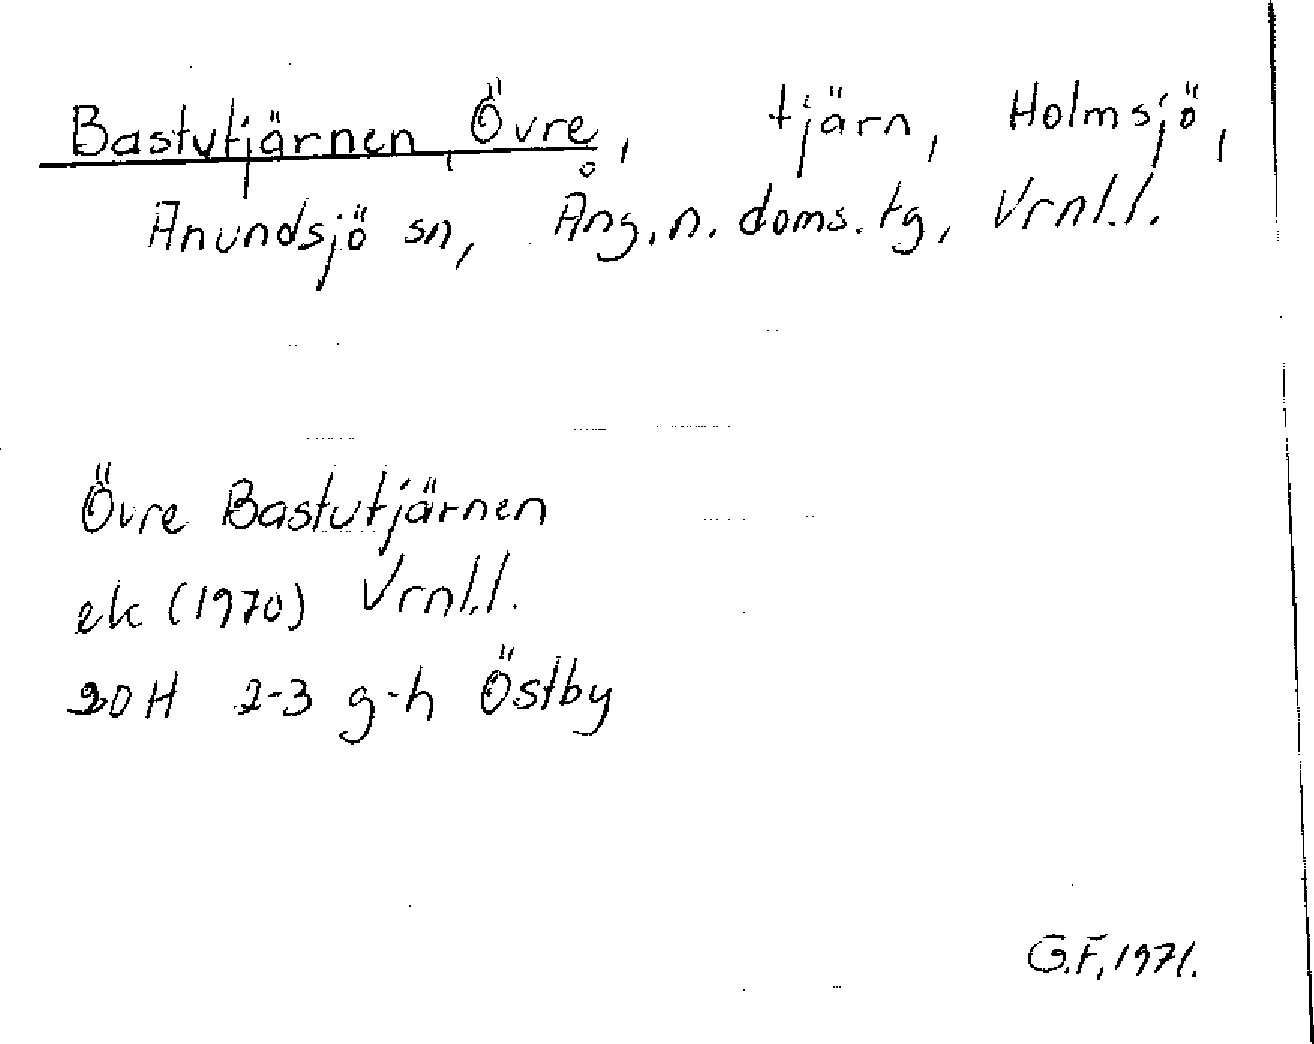 Bastutjärnen, Övre, tjärn, Holmsjö,
Anundsjö sn, Ång. n. doms. tg, Vrnl.l.
Övre Bastutjärnen
ek (1970) Vrnl.l.
20H 2-3 g-h Östby
G.F, 1971.